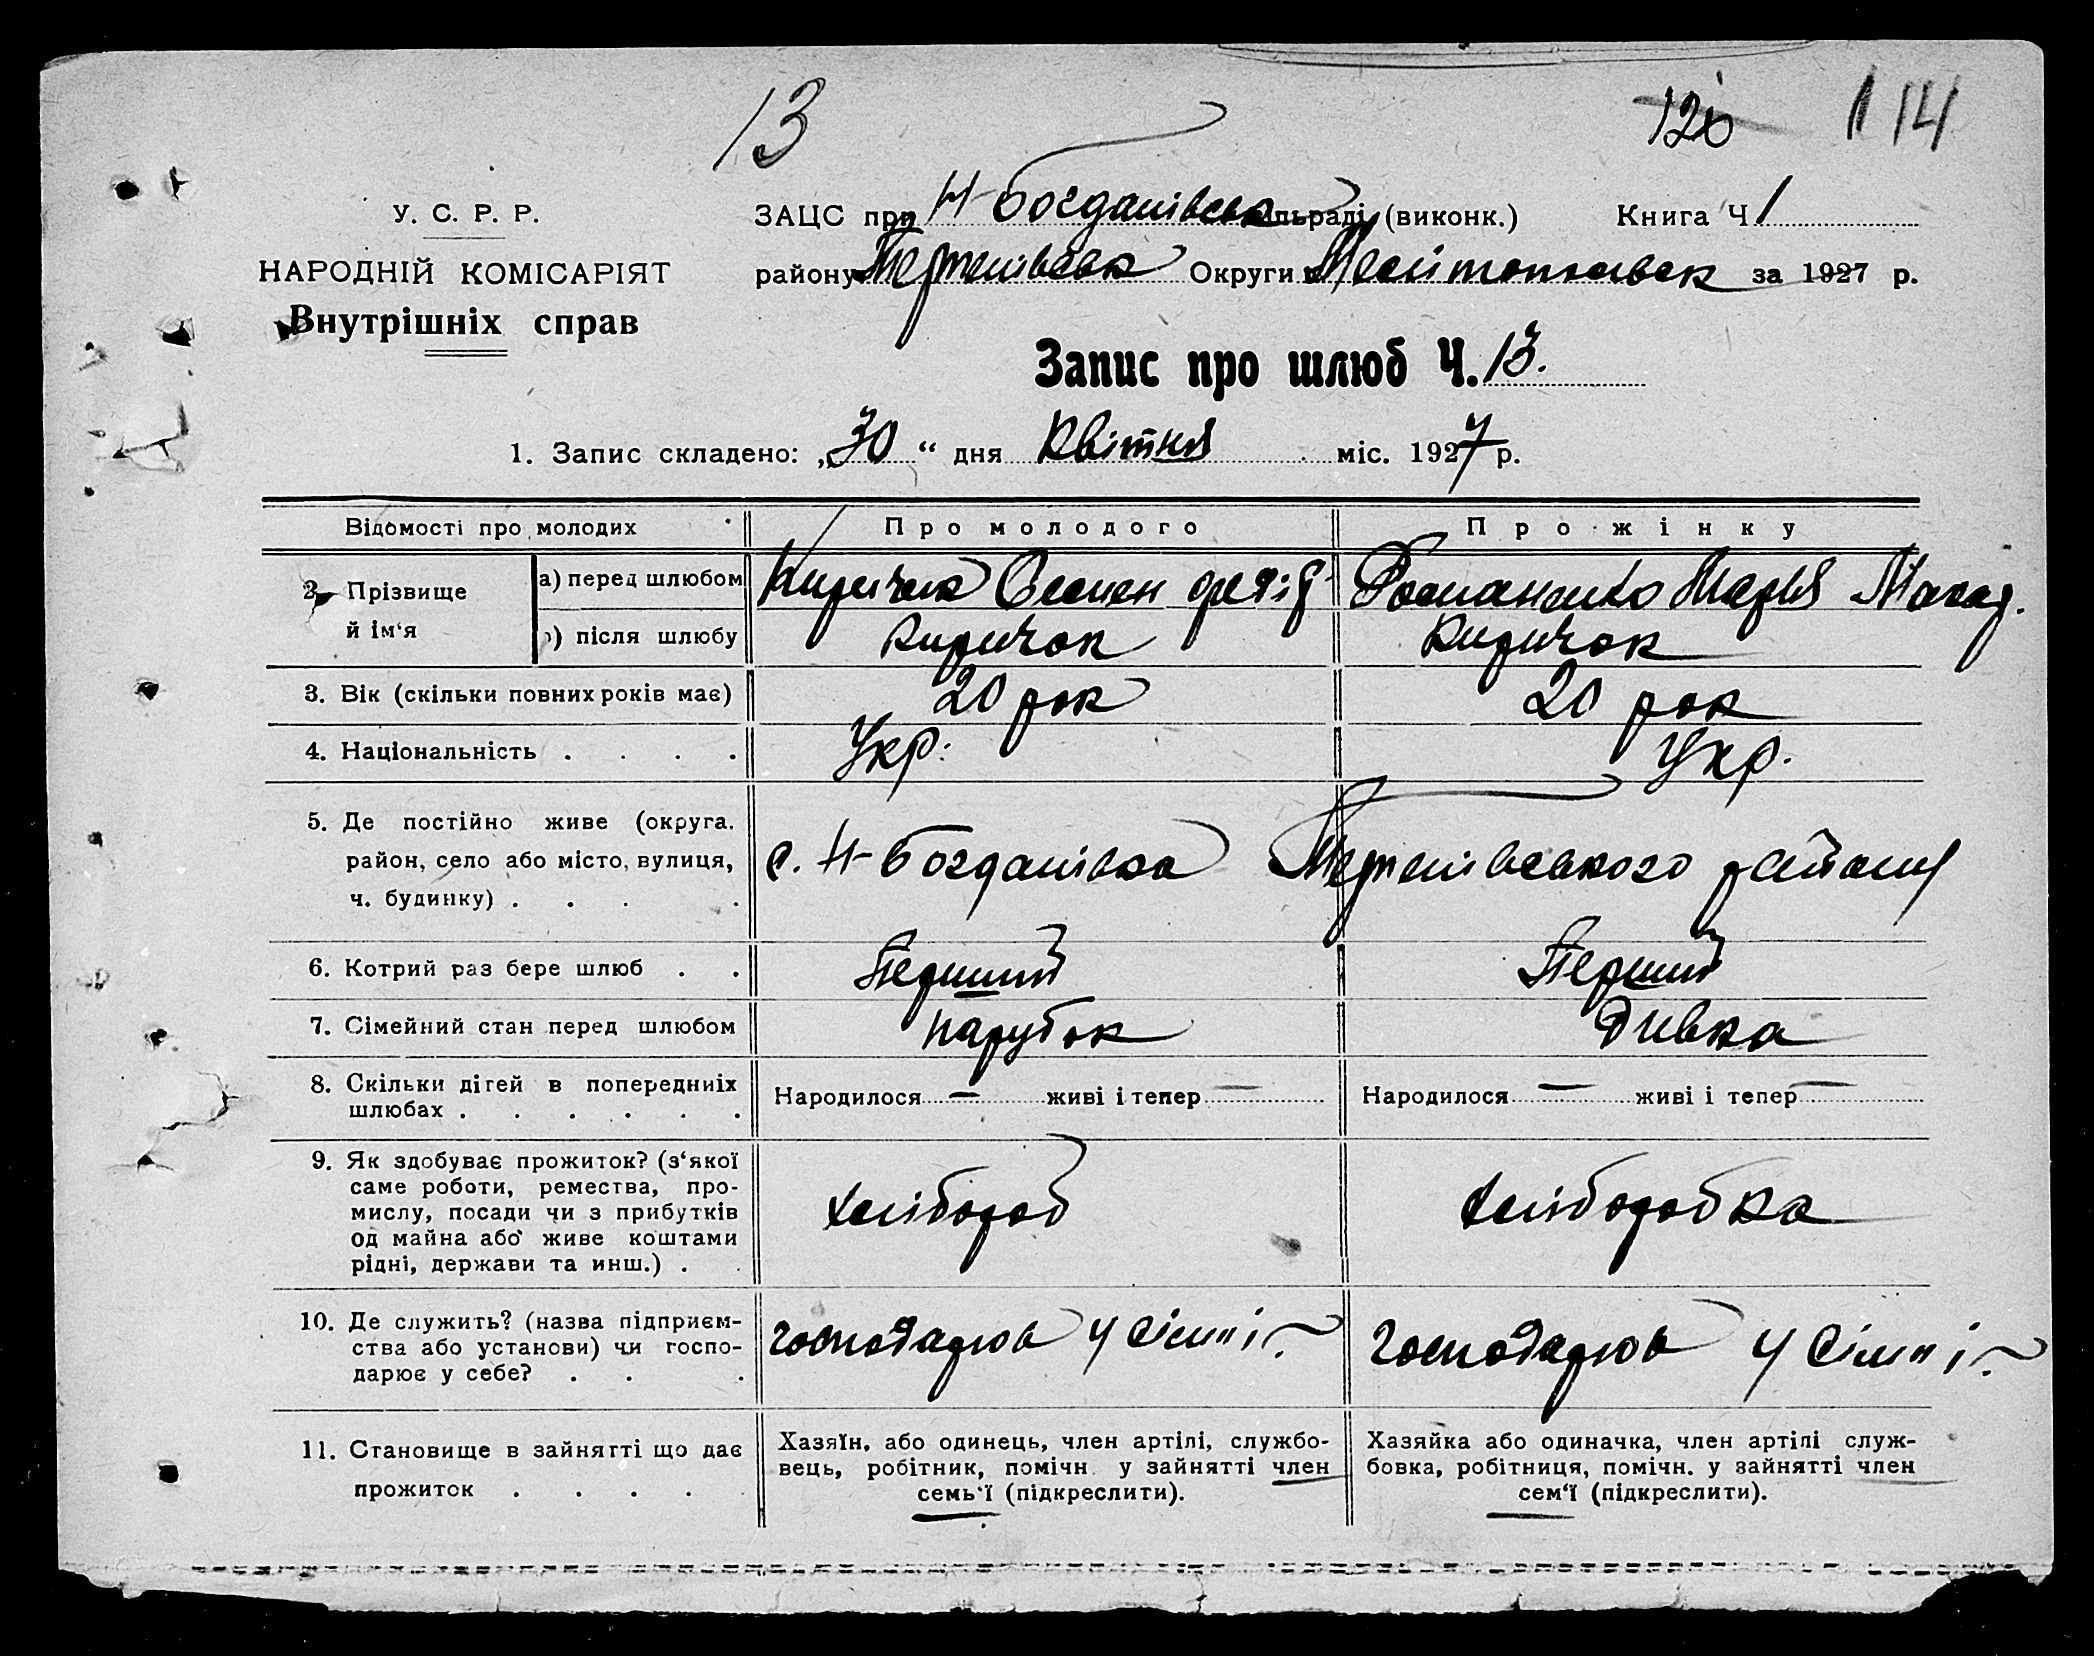 13
120
114
У. С. Р. Р.
НАРОДНІЙ КОМІСАРІЯТ
Внутрішніх справ
ЗАЦС при Н-Богданівськ ільраді (виконк.) Книга Ч 1
району Терпенівськ Округи Мелітопільськ за 1927 р.
Запис про шлюб Ч. 13.
1. Запис складено: „30“ дня Квітня міс. 1927 р.
Відомості про молодих Про молодого Про жінку
2. Прізвище й ім‘я а) перед шлюбом Киричок Семен Романенко Марія Макар.
б) після шлюбу Киричок Киричок
3. Вік (скільки повних років має) 20 рок 20 рок
4. Національність . . . . Укр. Укр.
5. Де постійно живе (округа,
район, село або місто, вулиця, с. Н-Богданівка Терпенівського району
ч. будинку) . . . .
6. Котрий раз бере шлюб . . Перший Перший
7. Сімейний стан перед шлюбом парубок Дивка
8. Скільки дітей в попередниіх Народилося — живі і тепер — Народилося — живі і тепер —
шлюбах . . . . . .
9. Як здобуває прожиток? (з‘якої
саме роботи, ремества, про-
мислу, посади чи з прибутків хлібороб хліборобка
од майна або живе коштами
рідні, держави та инш.) .
10. Де служить? (назва підприєм-
ства або установи) чи госпо- господарюв у сімні господарюв у сімні
дарює у себе? . . .
11. Становище в зайнятті що дає
прожиток . . . .
Хазяїн, або одинець, член артілі, службо-
вець, робітник, помічн. у зайнятті член
семь‘ї (підкреслити).
Хазяйка або одиначка, член артілі служ-
бовка, робітниця, помічн. у зайнятті член
сем‘ї (підкреслити).